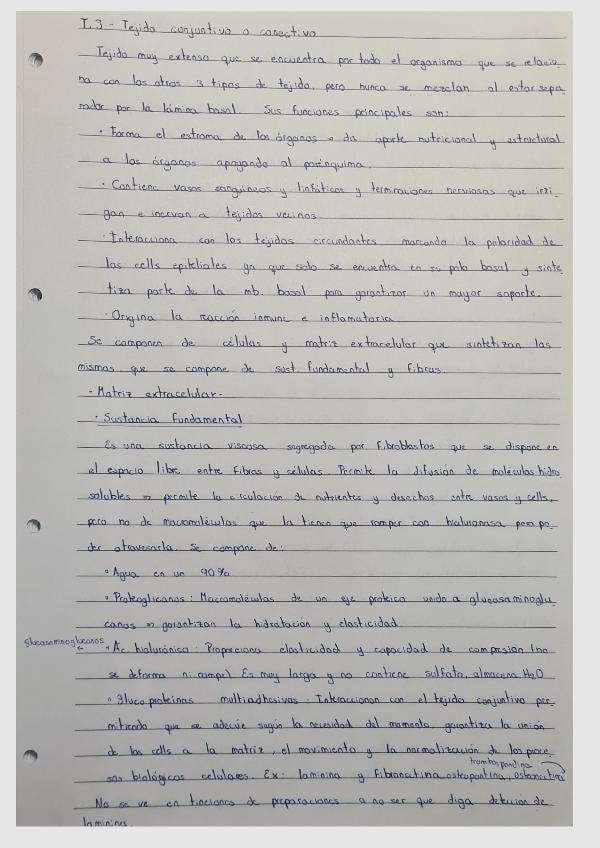 T.3 - Tejido conjuntivo o conectivo
Tejido muy extenso que se encuentra por todo el organismo que se relacio-
na con los otros 3 tipos de tejido, pero nunca se mezclan al estar sepa-
rador por la lámina basal. Sus funciones principales son:
· Forma el estroma de los órganos → da aporte nutricional y estructural
a los órganos apoyando al parénquima.
· Contiene vasos sanguíneos y linfáticos y terminaciones nerviosas que irri-
gan e inervan a tejidos vecinos
· Interacciona con los tejidos circundantes marcando la polaridad de
las cells epiteliales ya que solo se encuentra en su polo basal y sinte-
tiza parte de la mb. basal para garantizar un mayor soporte.
· Origina la reacción inmune e inflamatoria.
Se componen de células y matriz extracelular que sintetizan las
mismas que se compone de sust. fundamental y fibras.
- Matriz extracelular -
· Sustancia Fundamental
Es una sustancia viscosa segregada por fibroblastos que se dispone en
el espacio libre entre fibras y células. Permite la difusión de moléculas hidro
solubles ⇒ permite la circulación de nutrientes y desechos entre vasos y cells,
pero no de macromoléculas que la tienen que romper con hialuronasa para po-
der atravesarla. Se compone de:
• Agua en un 90%
• Proteoglicanos: Macromoléculas de un eje proteico unido a glucosaminoglu
canos ⇒ garantizan la hidratación y elasticidad
glucosaminoglucanos ← • Ac. hialurónico: Proporciona elasticidad y capacidad de compresión (no
se deforma ni rompe) Es muy larga y no contiene sulfato, almacena H2O
• Glucoproteinas multiadhesivas: Interaccionan con el tejido conjuntivo per-
mitiendo que se adecúe según la necesidad del momento, garantiza la unión
de las cells a la matriz, el movimiento y la normalización de los proce
sos biológicos celulares. Ex: laminina y fibronectina, osteopontina, osteonectina
trombospondina
No se ve en tinciones de preparaciones a no ser que diga detección de
laminina.